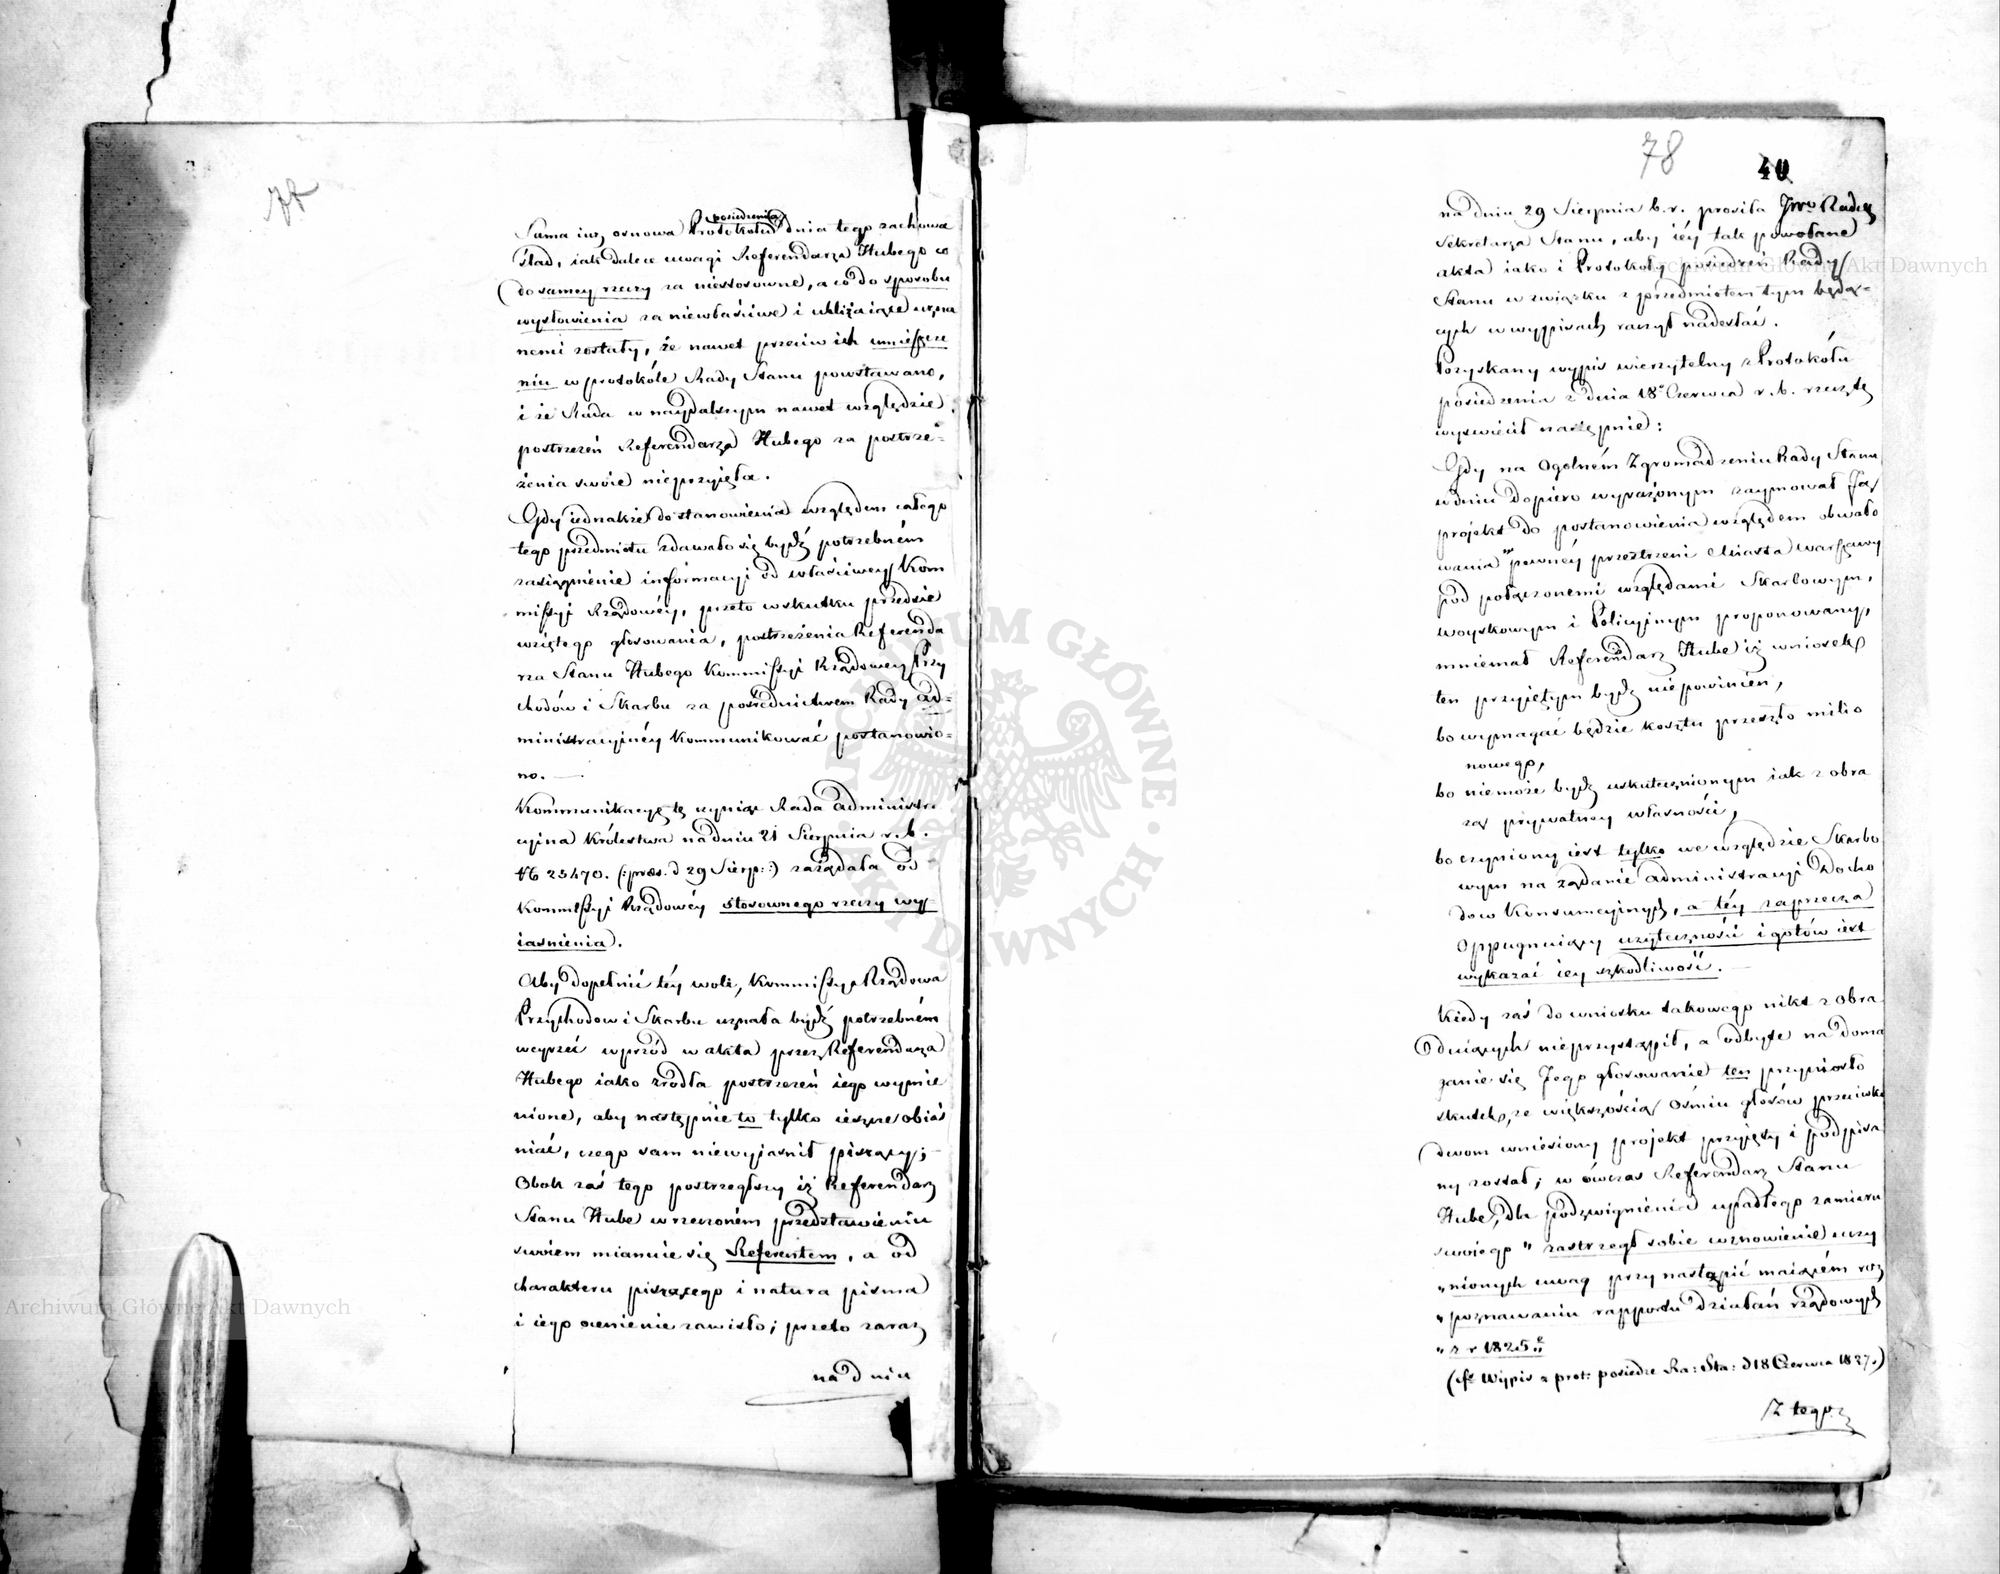 78
Sama iuż osnowa Protokołu posiedzenia dnia tego zachowa
ślad, iak dalece uwagi Referendarza Hubego co
do samey rzeczy za niestosowne, a co do sposobu
wysłowienia za niewłaściwe i ubliżaiące uzna
nemi zostały, że nawet przeciw ich umieszcze
niu w protokóle Rady Stanu powstawano,
i że Rada w naydalszym nawet względzie
postrzeżeń Referendarza Hubego za postrze-
żenia swoie nieprzyięła.
Gdy iednakże do stanowienia względem całego
tego przedmiotu zdawało się bydź potrzebném
zasiągnienie informacyi od właściwey Kom
missyi Rządowéy, przeto w skutku przedsie
wziętego głosowania, postrzeżenia Referenda
rza Stanu Hubego Kommissyi Rządowey Przy
chodów i Skarbu za pośrednictwem Rady Ad-
ministracyinéy kommunikować postanowio-
no. —
Kommunikacyę tę czyniąc Rada Administra
cyina Królestwa na dniu 21 Sierpnia r. b.
№ 25470. (: præs. d 29 Sierp: :) zażądała od
Kommissyi Rządowéy stosownego rzeczy wy-
iaśnienia.
Aby dopełnić téy woli, Kommissya Rządowa
Przychodow i Skarbu uznała bydź potrzebném
weyrzeć wprzód w akta przez Referendarza
Hubego iako zrodła postrzeżeń iego wymie
nione, aby następnie to tylko ieszcze obiaś
niać, czego sam niewyjaśnił piszący; —
Obok zaś tego postrzegłszy iż Referendarz
Stanu Hube w rzeczoném przedstawieniu
swoiem mianuie się Referentem, a od
charakteru piszącego i natura pisma
i iego ocenienie zawisło; przeto zaraz
na dniu
78
40
na dniu 29 Sierpnia b. r. prosiła JWo Radcę
Sekretarza Stanu, aby iéy tak powołane
akta iako i Protokoły posiedzeń Rady
Stanu w związku z przedmiotem tym będą-
cych w wypisach raczył nadesłać.
Pozyskany wypis wierzytelny z Protokółu
posiedzenia z dnia 18º Czerwca r. b. rzecz tę
wyświécił następnie:
Gdy na Ogolném Zgromadzeniu Rady Stanu
w dniu dopiero wyrażonym zaymował Ją
projekt do postanowienia względem obwało
wania pewnéy przestrzeni Miasta Warszawy
pod połączonemi względami Skarbowym,
woyskowym i Policyinym proponowany,
mniemał Referendarz Hube iż wniosek
ten przyiętym bydź niepowinien,
bo wymagać będzie kosztu przeszło milio
nowego,
bo niemoże bydź uskutecznionym iak z obra
zą prywatney własności,
bo czyniony iest tylko we względzie Skarbo
wym na żądanie Administracyi Docho
dow Konsumcyinych, a téy zaprzecza
Oppugnuiący użyteczność i gotów iest
wykazać iey szkodliwość. —
Kiedy zaś do wniosku takowego nikt z obra
duiących nieprzystąpił, a odbyte na doma
ganie się Jego głosowanie ten przyniosło
skutek, że większością Ośmiu głosów przeciwko
dwom wniesiony projekt przyięty i podpisa
ny został; w ówczas Referendarz Stanu
Hube, dla podzwignienia upadłego zamiaru
swoiego " zastrzegł sobie wznowienie uczy
" nionych uwag przy nastąpić maiącém roz
" poznawaniu rapportu działań rządowych
" z r 1825.
(cfr Wypis z prot: posiedze Ra: Sta: d 18 Czerwca 1827.)
Z tego
Archiwum Główne Akt Dawnych
Archiwum Główne Akt Dawnych
ARCHIWUM GŁÓWNE
AKT DAWNYCH